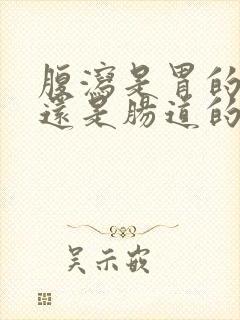 腹瀉是胃的
還是腸道的
吴示嵌